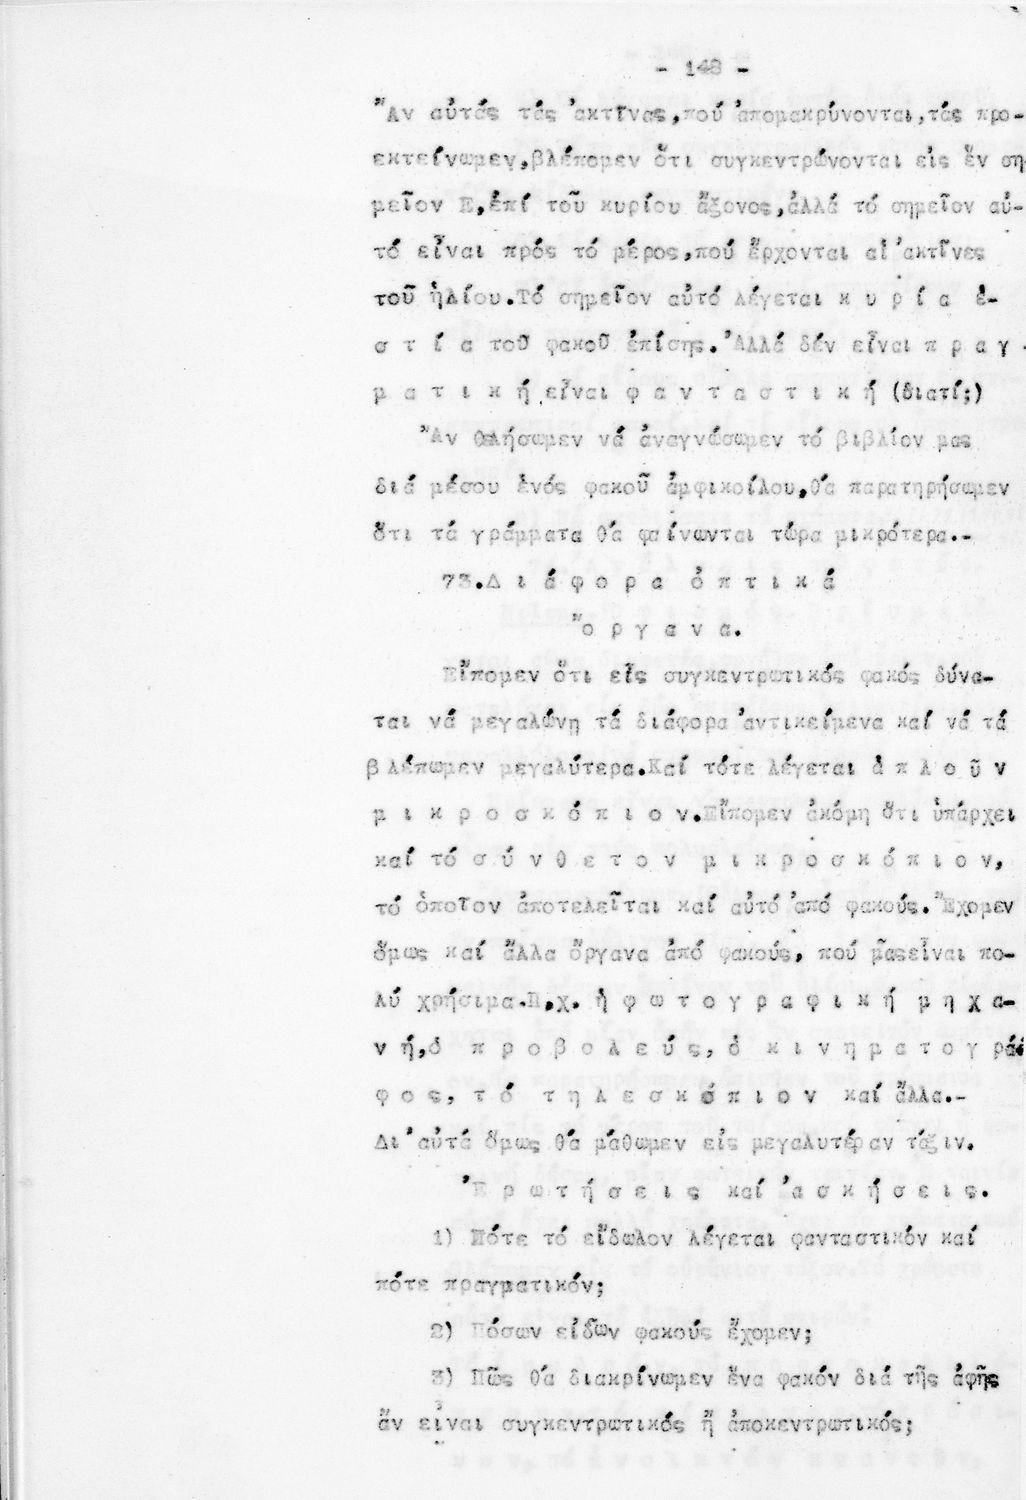 - 148 -
Ἄν αὐτάς τάς ἀκτῖνας,πού ἀπομακρύνονται,τάς προ-
εκτείνωμεν,βλέπομεν ὅτι συγκεντρώνονται εἰς ἕν ση
μεῖον Ε,ἐπί τοῦ κυρίου ἄξονος,ἀλλά τό σημεῖον αὐ-
τό εἶναι πρός τό μέρος,πού ἔρχονται αἱ ἀκτῖνες
τοῦ ἡλίου.Τό σημεῖον αὐτό λέγεται κ υ ρ ί α ἑ-
σ τ ί α τοῦ φακοῦ ἐπίσης.Ἀλλά δέν εἶναι π ρ α γ -
μ α τ ι κ ή,εἶναι φ α ν τ α σ τ ι κ ή (διατί;)
Ἄν θελήσωμεν νά ἀναγνώσωμεν τό βιβλίον μας
διά μέσου ἑνός φακοῦ ἀμφικοίλου,θά παρατηρήσωμεν
ὅτι τά γράμματα θά φαίνωνται τώρα μικρότερα.-
73.Δ ι ά φ ο ρ α ὀ π τ ι κ ά
Ὄ ρ γ α ν α.
Εἴπομεν ὅτι εἷς συγκεντρωτικός φακός δύνα-
ται νά μεγαλώνῃ τά διάφορα ἀντικείμενα καί νά τά
βλέπωμεν μεγαλύτερα.Καί τότε λέγεται ἁ π λ ο ῦ ν
μ ι κ ρ ο σ κ ό π ι ο ν.Εἴπομεν ἀκόμη ὅτι ὑπάρχει
καί τό σ ύ ν θ ε τ ο ν μ ι κ ρ ο σ κ ό π ι ο ν,
τό ὁποῖον ἀποτελεῖται καί αὐτό ἀπό φακούς.Ἔχομεν
ὅμως καί ἄλλα ὄργανα ἀπό φακούς, πού μᾶςεἶναι πο-
λύ χρήσιμα.Π.χ. ἡ φ ω τ ο γ ρ α φ ι κ ή μ η χ α-
ν ή,ὁ π ρ ο β ο λ ε ύ ς, ὁ κ ι ν η μ α τ ο γ ρ ά-
φ ο ς, τ ό τ η λ ε σ κ ό π ι ο ν καί ἄλλα.-
Δι'αὐτά ὅμως θά μάθωμεν εἰς μεγαλυτέραν τάξιν.
Ἐ ρ ω τ ή σ ε ι ς καί ἀ σ κ ή σ ε ι ς.
1) Πότε τό εἴδωλον λέγεται φανταστικόν καί
πότε πραγματικόν;
2) Πόσων εἰδῶν φακούς ἔχομεν;
3) Πῶς θά διακρίνωμεν ἕνα φακόν διά τῆς ἁφῆς
ἄν εἶναι συγκεντρωτικός ἤ ἀποκεντρωτικός;